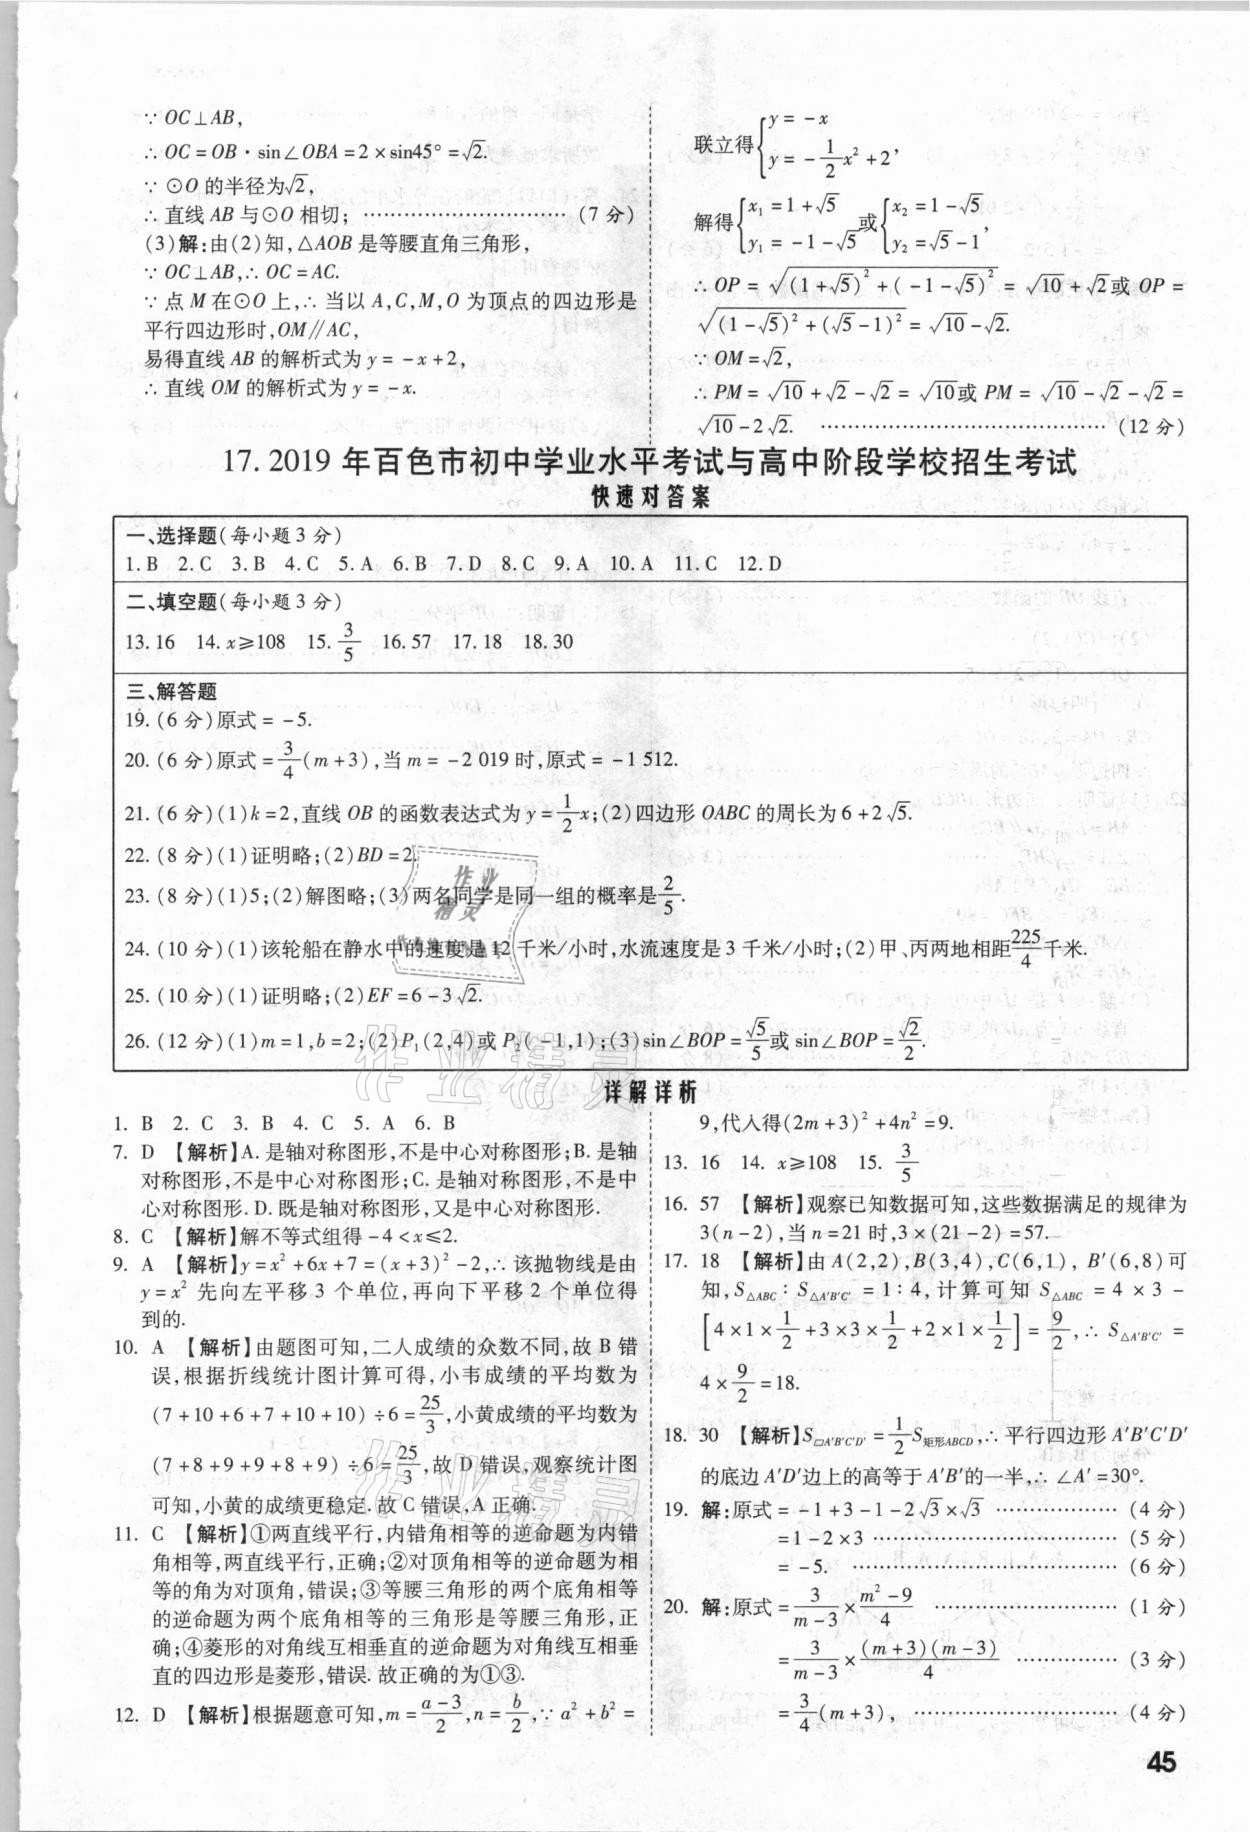 ∵ OC⊥AB,
∴OC=OB·sin∠OBA=2×sin45°=√2.
∵ ⊙O 的半径为√2,
∴直线 AB 与⊙O 相切; ………………………… (7 分)
(3)解:由(2)知,△AOB 是等腰直角三角形,
∵ OC⊥AB,∴ OC=AC.
∵点 M 在⊙O 上,∴当以 A,C,M,O 为顶点的四边形是
平行四边形时,OM∥AC,
易得直线 AB 的解析式为 y=-x+2,
∴直线 OM 的解析式为 y=-x.
联立得{y=-x
y=-1/2x²+2,
解得{x₁=1+√5 y₁=-1-√5 或{x₂=1-√5 y₂=√5-1,
∴ OP=√((1+√5)²+(-1-√5)²)=√10+√2或 OP=
√((1-√5)²+(√5-1)²)=√10-√2.
∵ OM=√2,
∴ PM=√10+√2-√2=√10或 PM=√10-√2-√2=
√10-2√2. ………………………………… (12 分)
17. 2019 年百色市初中学业水平考试与高中阶段学校招生考试
快速对答案
一、选择题(每小题 3 分)
1. B 2. C 3. B 4. C 5. A 6. B 7. D 8. C 9. A 10. A 11. C 12. D
二、填空题(每小题 3 分)
13. 16 14. x≥108 15. 3/5 16. 57 17. 18 18. 30
三、解答题
19. (6 分)原式=-5.
20. (6 分)原式=3/4(m+3),当 m=-2 019 时,原式=-1 512.
21. (6 分)(1)k=2,直线 OB 的函数表达式为 y=1/2x;(2)四边形 OABC 的周长为 6+2√5.
22. (8 分)(1)证明略;(2)BD=2.
23. (8 分)(1)5;(2)解图略;(3)两名同学是同一组的概率是2/5.
24. (10 分)(1)该轮船在静水中的速度是 12 千米/小时,水流速度是 3 千米/小时;(2)甲、丙两地相距225/4千米.
25. (10 分)(1)证明略;(2)EF=6-3√2.
26. (12 分)(1)m=1,b=2;(2)P₁(2,4)或 P₂(-1,1);(3)sin∠BOP=√5/5或 sin∠BOP=√2/2.
详解详析
1. B 2. C 3. B 4. C 5. A 6. B
7. D 【解析】A. 是轴对称图形,不是中心对称图形;B. 是轴
对称图形,不是中心对称图形;C. 是轴对称图形,不是中
心对称图形. D. 既是轴对称图形,又是中心对称图形.
8. C 【解析】解不等式组得-4<x≤2.
9. A 【解析】y=x²+6x+7=(x+3)²-2,∴该抛物线是由
y=x² 先向左平移 3 个单位,再向下平移 2 个单位得
到的.
10. A 【解析】由题图可知,二人成绩的众数不同,故 B 错
误,根据折线统计图计算可得,小韦成绩的平均数为
(7+10+6+7+10+10)÷6=25/3,小黄成绩的平均数为
(7+8+9+9+8+9)÷6=25/3,故 D 错误,观察统计图
可知,小黄的成绩更稳定. 故 C 错误,A 正确.
11. C 【解析】①两直线平行,内错角相等的逆命题为内错
角相等,两直线平行,正确;②对顶角相等的逆命题为相
等的角为对顶角,错误;③等腰三角形的两个底角相等
的逆命题为两个底角相等的三角形是等腰三角形,正
确;④菱形的对角线互相垂直的逆命题为对角线互相垂
直的四边形是菱形,错误. 故正确的为①③.
12. D 【解析】根据题意可知,m=(a-3)/2,n=b/2,∵a²+b²=
9,代入得(2m+3)²+4n²=9.
13. 16 14. x≥108 15. 3/5
16. 57 【解析】观察已知数据可知,这些数据满足的规律为
3(n-2),当 n=21 时,3×(21-2)=57.
17. 18 【解析】由 A(2,2),B(3,4),C(6,1), B′(6,8)可
知,S△ABC∶S△A′B′C′=1∶4,计算可知 S△ABC=4×3-
[4×1×1/2+3×3×1/2+2×1×1/2]=9/2,∴S△A′B′C′=
4×9/2=18.
18. 30 【解析】S▱A′B′C′D′=1/2S矩形ABCD,∴平行四边形 A′B′C′D′
的底边 A′D′边上的高等于 A′B′的一半,∴∠A′=30°.
19. 解:原式=-1+3-1-2√3×√3 ……………… (4 分)
=1-2×3 …………………………… (5 分)
=-5. ……………………………… (6 分)
20. 解:原式=3/(m-3)×(m²-9)/4 ……………………… (1 分)
=3/(m-3)×(m+3)(m-3)/4 …………… (3 分)
=3/4(m+3), ………………………… (4 分)
45
作业
精灵
作业精灵
作业精灵